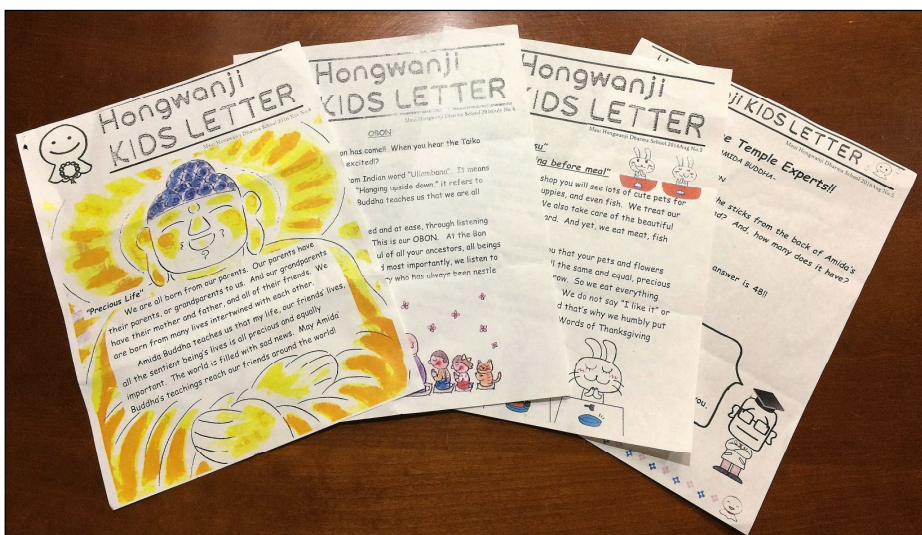 Hongwanji
KIDS LETTER
Maui Hongwanji Dharma School 2016
"Precious Life"
We are all born from our parents. Our parents have
their parents, or grandparents to us. And our grandparents
have their mother and father, and all of their friends. We
are born from many lives intertwined with each other.
Amida Buddha teaches us that my life, our friends' lives,
all the sentient being's lives is all precious and equally
important. The world is filled with sad news. May Amida
Buddha's teachings reach our friends around the world!
Hongwanji
KIDS LETTER
Maui Hongwanji Dharma School 2016
OBON
on has come!! When you hear the Taiko
excited!?
om Indian word "Ullambana". It means
"Hanging upside down." it refers to
Buddha teaches us that we are all
ed and at ease, through listening
This is our OBON. At the Bon
ul of all your ancestors, all beings
d most importantly, we listen to
ry who has always been nestle
Hongwanji
KIDS LETTER
Maui Hongwanji Dharma School 2016Aug No.5
su"
ng before meal"
shop you will see lots of cute pets for
uppies, and even fish. We treat our
We also take care of the beautiful
ard. And yet, we eat meat, fish
ou that your pets and flowers
ll the same and equal, precious
row. So we eat everything
We do not say "I like it" or
d that's why we humbly put
Words of Thanksgiving
ji KIDS LETTER
Maui Hongwanji Dharma School 2016Aug No.5
e Temple Experts!!
MIDA BUDDHA-
N
he sticks from the back of Amida's
nd? And, how many does it have?
answer is 48!!
you.